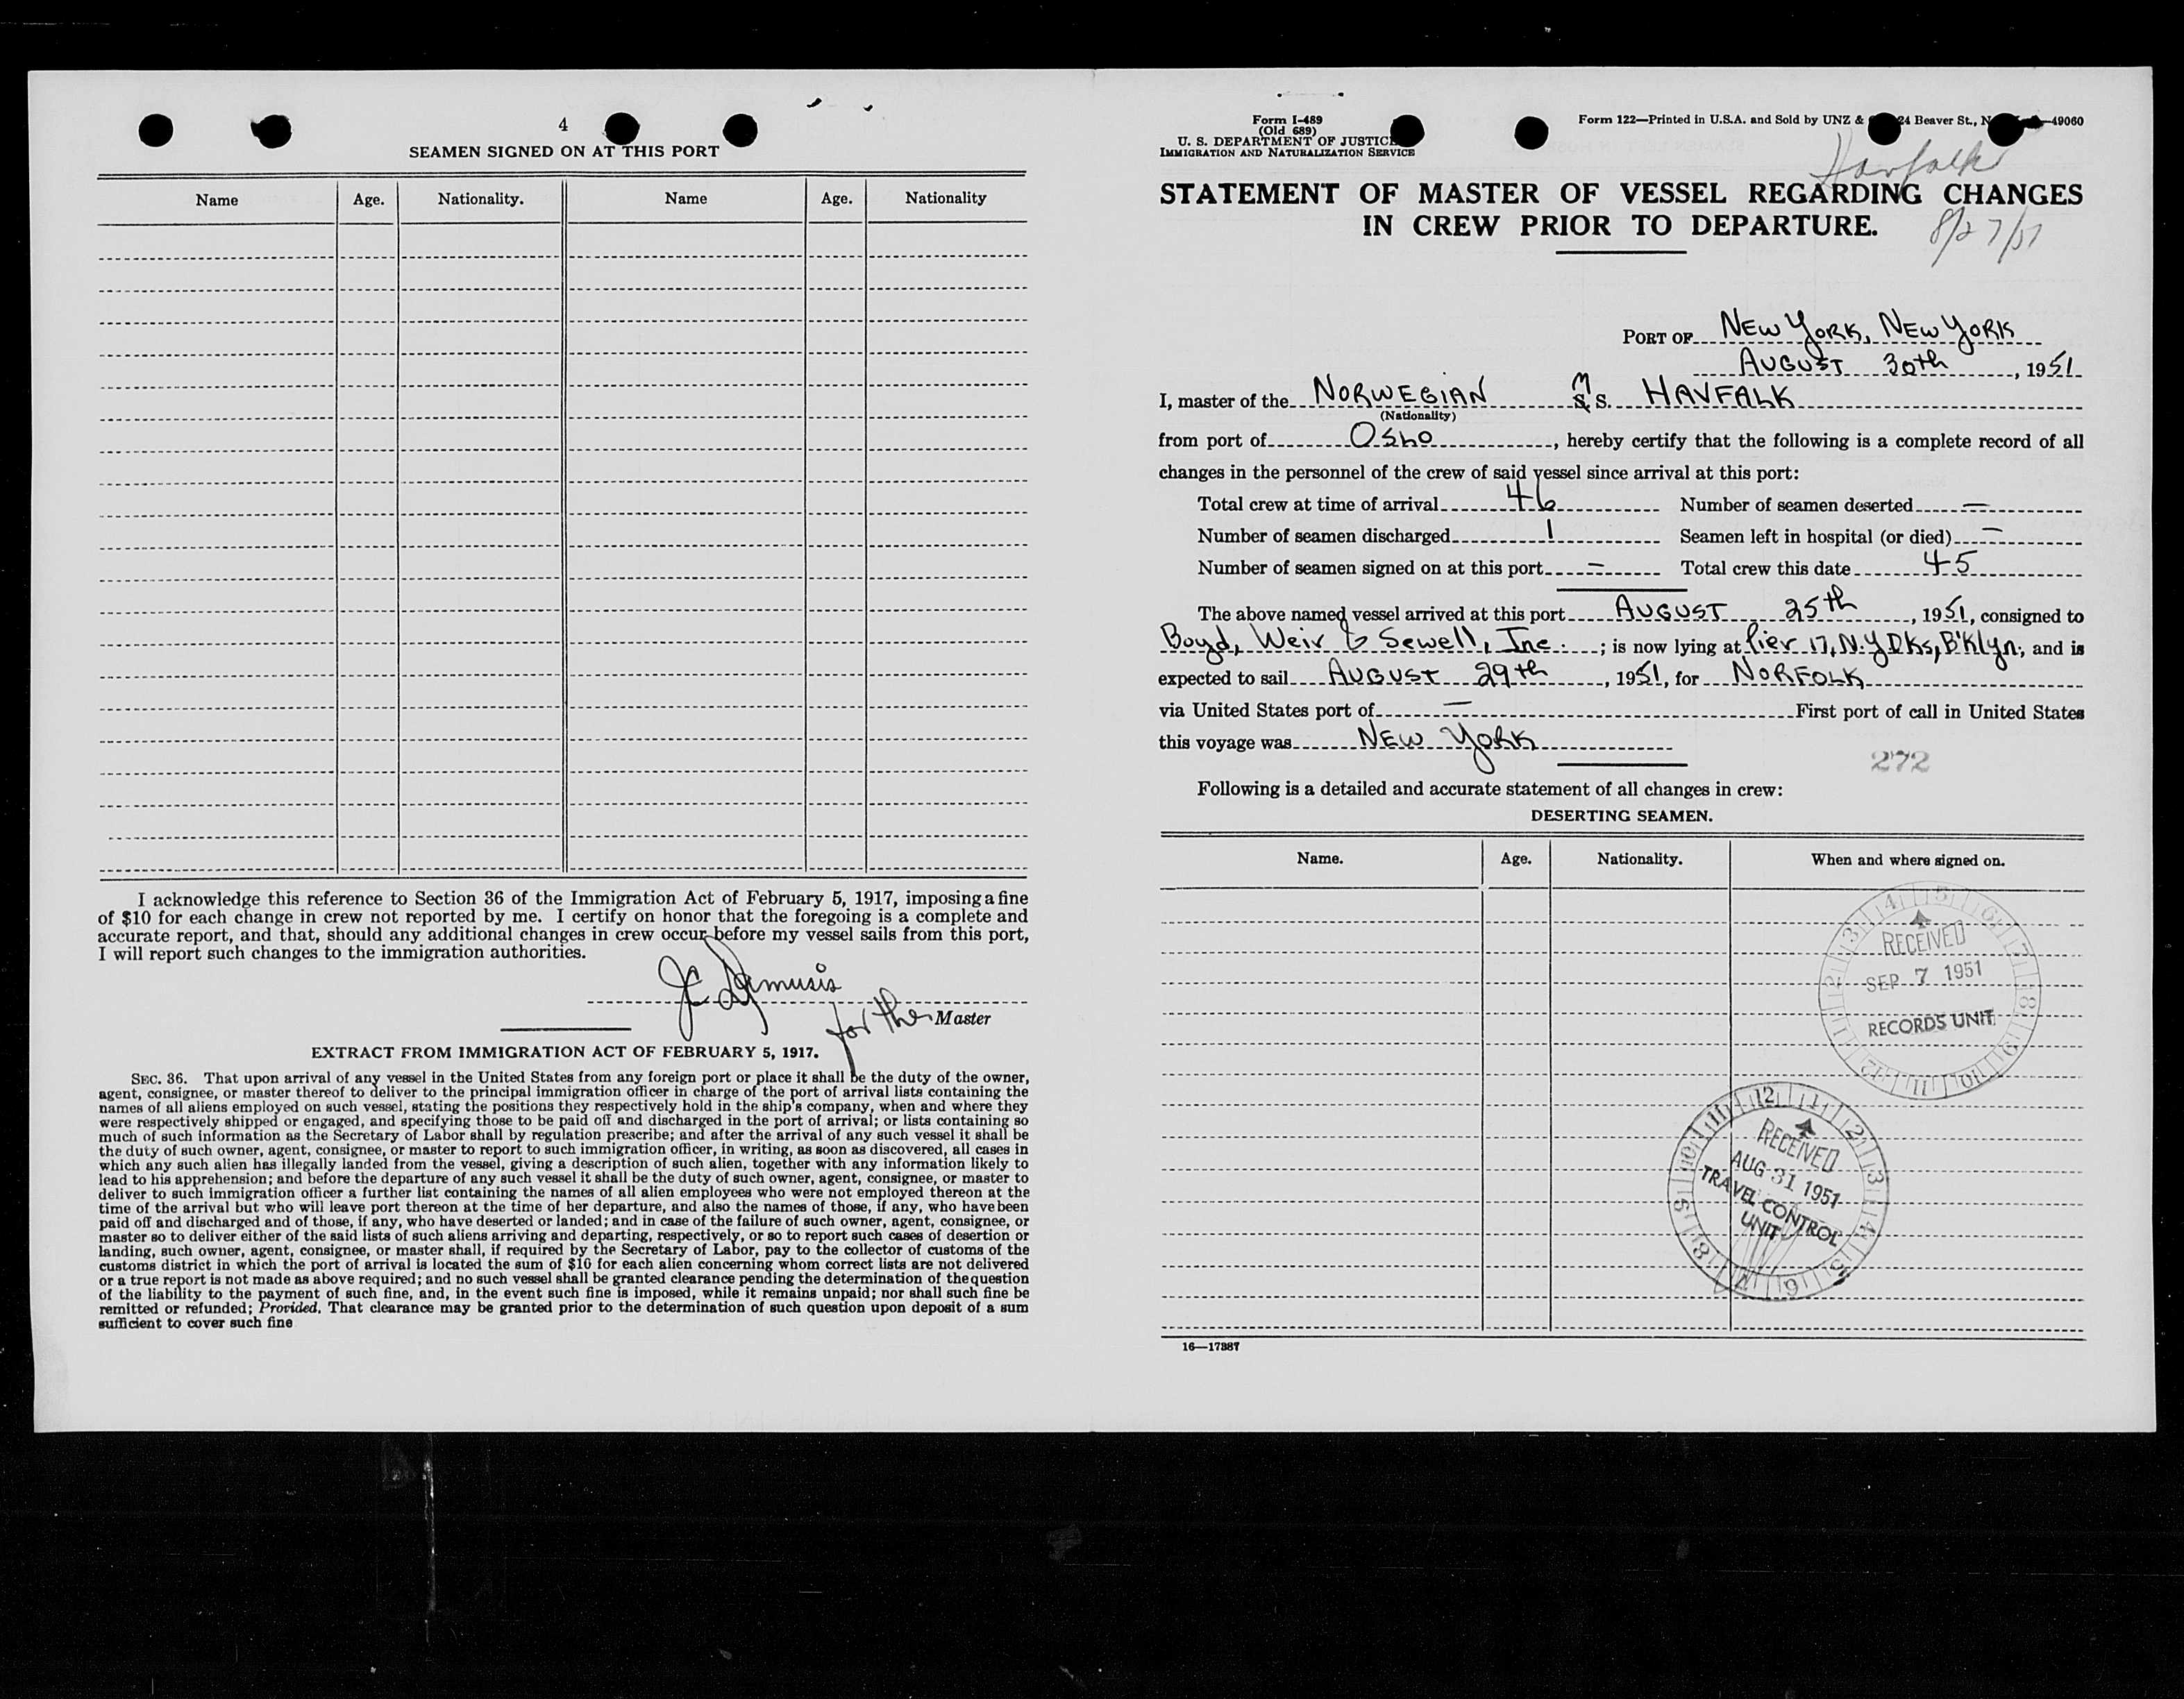 4
SEAMEN SIGNED ON AT THIS PORT
Name Age. Nationality. Name Age. Nationality
I acknowledge this reference to Section 36 of the Immigration Act of February 5, 1917, imposing a fine
of $10 for each change in crew not reported by me. I certify on honor that the foregoing is a complete and
accurate report, and that, should any additional changes in crew occur before my vessel sails from this port,
I will report such changes to the immigration authorities.
for the Master
EXTRACT FROM IMMIGRATION ACT OF FEBRUARY 5, 1917.
SEC. 36. That upon arrival of any vessel in the United States from any foreign port or place it shall be the duty of the owner,
agent, consignee, or master thereof to deliver to the principal immigration officer in charge of the port of arrival lists containing the
names of all aliens employed on such vessel, stating the positions they respectively hold in the ship's company, when and where they
were respectively shipped or engaged, and specifying those to be paid off and discharged in the port of arrival; or lists containing so
much of such information as the Secretary of Labor shall by regulation prescribe; and after the arrival of any such vessel it shall be
the duty of such owner, agent, consignee, or master to report to such immigration officer, in writing, as soon as discovered, all cases in
which any such alien has illegally landed from the vessel, giving a description of such alien, together with any information likely to
lead to his apprehension; and before the departure of any such vessel it shall be the duty of such owner, agent, consignee, or master to
deliver to such immigration officer a further list containing the names of all alien employees who were not employed thereon at the
time of the arrival but who will leave port thereon at the time of her departure, and also the names of those, if any, who have been
paid off and discharged and of those, if any, who have deserted or landed; and in case of the failure of such owner, agent, consignee, or
master so to deliver either of the said lists of such aliens arriving and departing, respectively, or so to report such cases of desertion or
landing, such owner, agent, consignee, or master shall, if required by the Secretary of Labor, pay to the collector of customs of the
customs district in which the port of arrival is located the sum of $10 for each alien concerning whom correct lists are not delivered
or a true report is not made as above required; and no such vessel shall be granted clearance pending the determination of the question
of the liability to the payment of such fine, and, in the event such fine is imposed, while it remains unpaid; nor shall such fine be
remitted or refunded; Provided, That clearance may be granted prior to the determination of such question upon deposit of a sum
sufficient to cover such fine
Form I-489
(Old 689)
U. S. DEPARTMENT OF JUSTICE
IMMIGRATION AND NATURALIZATION SERVICE
Form 122—Printed in U.S.A. and Sold by UNZ & 24 Beaver St., N —49060
Havfalk
STATEMENT OF MASTER OF VESSEL REGARDING CHANGES
IN CREW PRIOR TO DEPARTURE.
8/27/51
PORT OF NEW YORK, NEW YORK
AUGUST 30th, 1951
I, master of the NORWEGIAN M S. HAVFALK
(Nationality)
from port of OSLO, hereby certify that the following is a complete record of all
changes in the personnel of the crew of said vessel since arrival at this port:
Total crew at time of arrival 46 Number of seamen deserted —
Number of seamen discharged 1 Seamen left in hospital (or died) —
Number of seamen signed on at this port — Total crew this date 45
The above named vessel arrived at this port AUGUST 25th, 1951, consigned to
Boyd, Weir & Sewell, Inc.; is now lying at Pier 17, N.Y Dks, B'klyn, and is
expected to sail AUGUST 29th, 1951, for NORFOLK
via United States port of — First port of call in United States
this voyage was NEW YORK
272
Following is a detailed and accurate statement of all changes in crew:
DESERTING SEAMEN.
Name. Age. Nationality. When and where signed on.
RECEIVED
SEP 7 1951
RECORDS UNIT
RECEIVED
AUG 31 1951
TRAVEL CONTROL
UNIT
16—17387